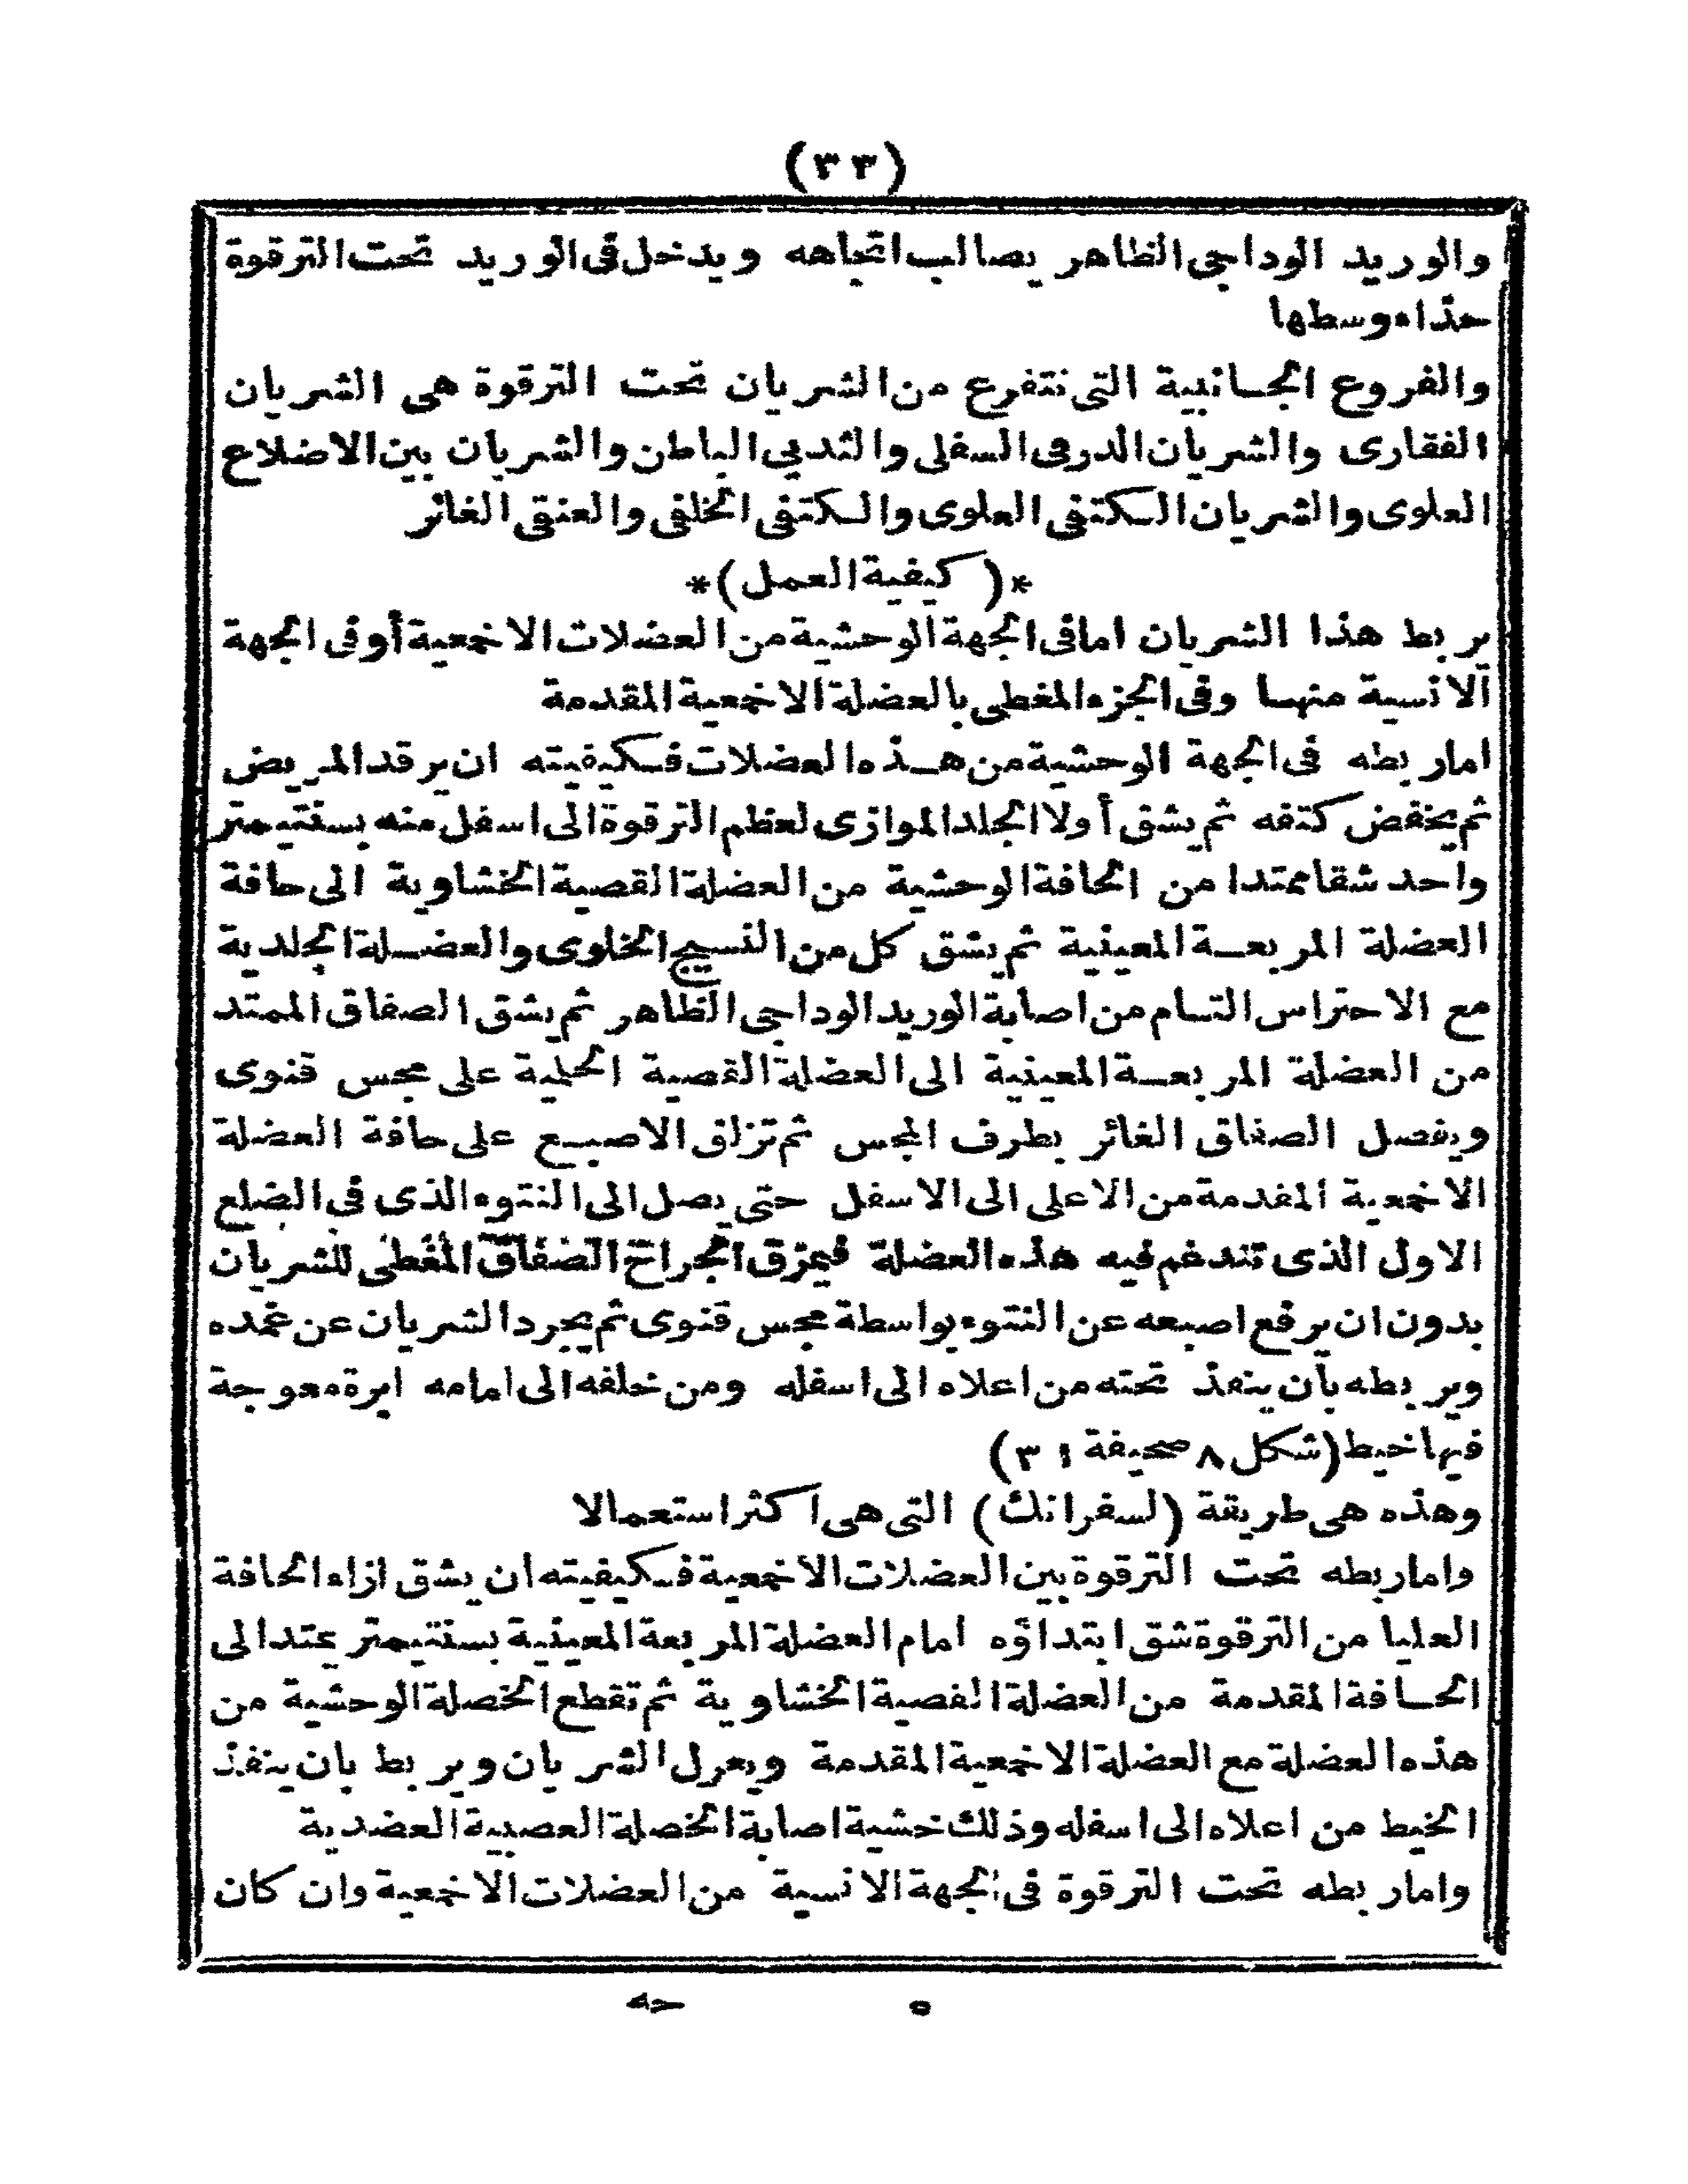 (٣٣)
والوريد الوداجى الظاهر يصالب اتجاهه ويدخل فى الوريد تحت الترقوة
حذاء وسطها
والفروع الجانبية التى نتفرع من الشريان تحت الترقوة هى الشريان
الفقارى والشريان الدرقى السفلى والثديى الباطن والشريان بين الاضلاع
العلوى والشريان الكتفى العلوى والكتفى الخلفى والعنقى الغائر
*(كيفية العمل)*
يربط هذا الشريان امافى الجهة الوحشية من العضلات الاخمعية أوفى الجهة
الانسية منها وفى الجزء المغطى بالعضلة الاخمعية المقدمة
اماربطه فى الجهة الوحشية من هذه العضلات فكيفيته ان يرقد المريض
ثم يخفض كتفه ثم يشق أولا الجلد الموازى لعظم الترقوة الى اسفل منه بسنتيمتر
واحد شقا ممتدا من الحافة الوحشية من العضلة القصية الخشاوية الى حافة
العضلة المربعة المعينية ثم يشق كل من النسيج الخلوى والعضلة الجلدية
مع الاحتراس التام من اصابة الوريد الوداجى الظاهر ثم يشق الصفاق الممتد
من العضلة المربعة المعينية الى العضلة القصية الحلمية على مجس قنوى
ويفصل الصفاق الغائر بطرف المجس ثم تزلق الاصبع على حافة العضلة
الاخمعية المقدمة من الاعلى الى الاسفل حتى يصل الى النتوء الذى فى الضلع
الاول الذى تندغم فيه هذه العضلة فيمزق الجراح الصفاق المغطى للشريان
بدون ان يرفع اصبعه عن النتوء بواسطة مجس قنوى ثم يجرد الشريان عن غمده
ويربطه بأن ينفذ تحته من اعلاه الى اسفله ومن خلفه الى امامه ابرة معوجة
فيها خيط (شكل ٨ صحيفة ٣١)
وهذه هى طريقة (لسفرانك) التى هى اكثر استعمالا
واماربطه تحت الترقوة بين العضلات الاخمعية فكيفيته ان يشق ازاء الحافة
العليا من الترقوة شق ابتداؤه امام العضلة المربعة المعينية بسنتيمتر يمتد الى
الحافة المقدمة من العضلة القصية الخشاوية ثم تقطع الخصلة الوحشية من
هذه العضلة مع العضلة الاخمعية المقدمة ويعزل الشريان ويربط بان ينفذ
الخيط من اعلاه الى اسفله وذلك خشية اصابة الخصلة العصبية العضدية
واماربطه تحت الترقوة فى الجهة الانسية من العضلات الاخمعية وان كان
٥ حه